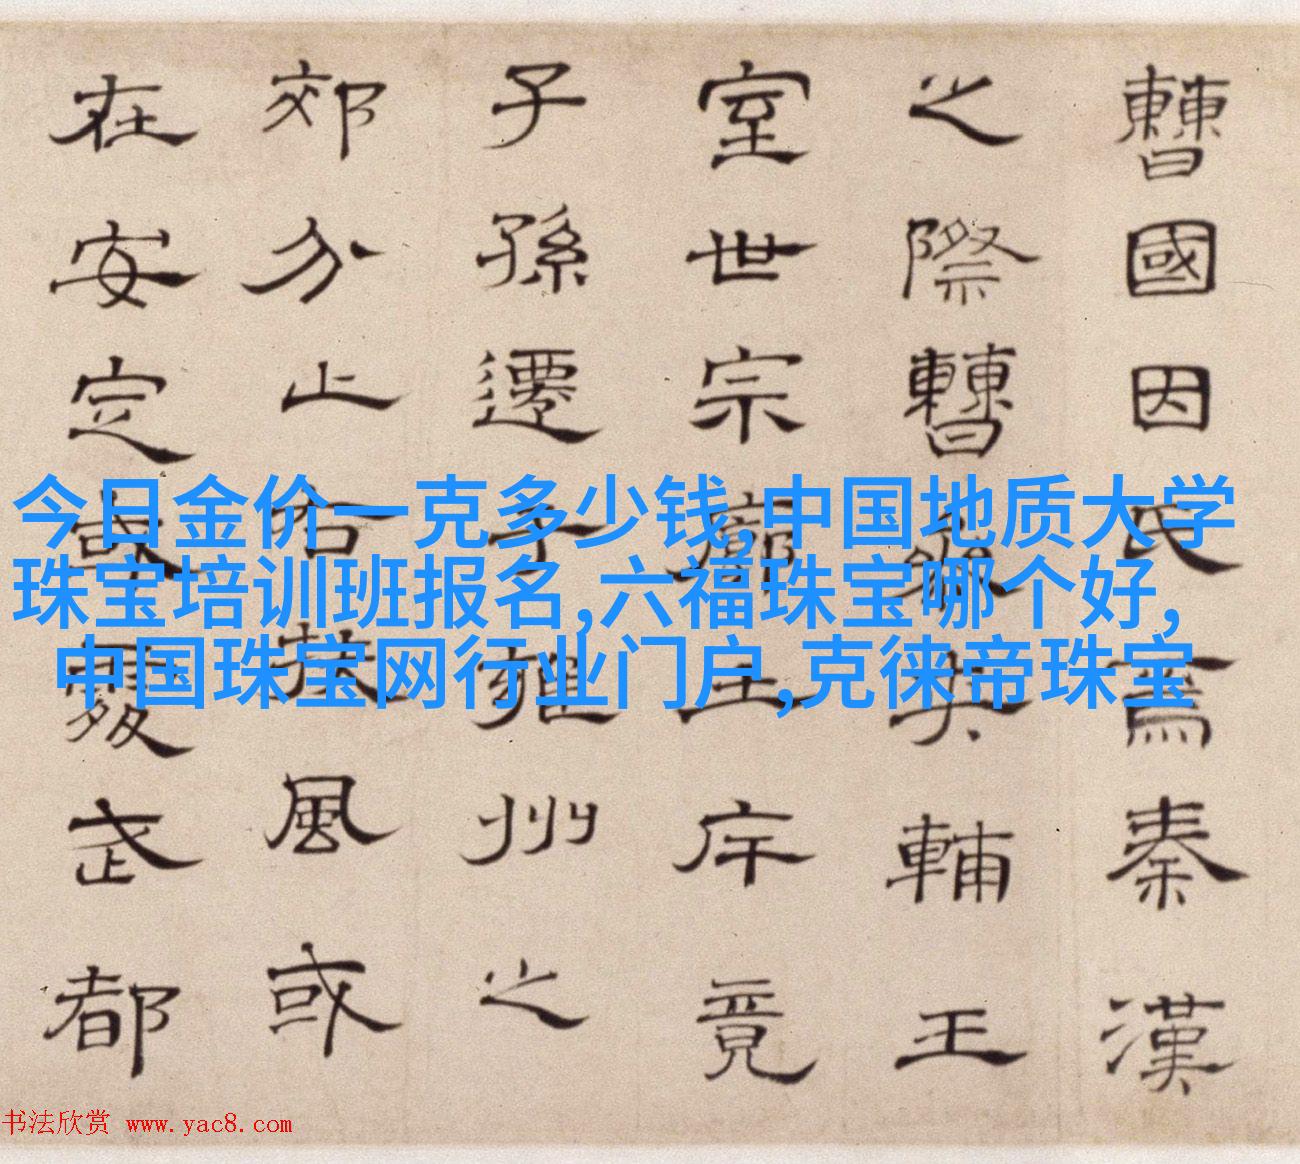 曹國因氏焉秦漢
之際曹參夾輔王
室世宗廓土斥竟
子孫遷于雍州之
郊分止右扶風或
在安定或處武都
今日金价一克多少钱,中国地质大学
珠宝培训班报名,六福珠宝哪个好,
中国珠宝网行业门户,克徕帝珠宝
书法欣赏 www.yac8.com